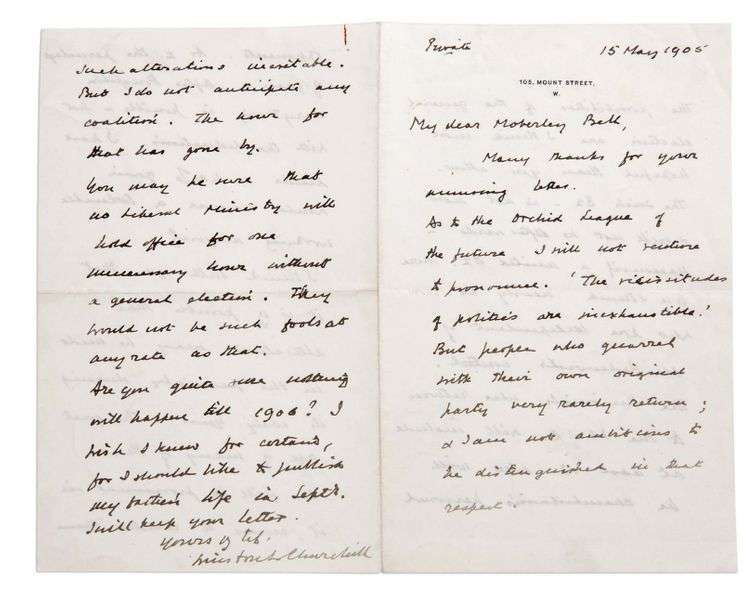 Private
15 May 1905
105, MOUNT STREET,
W.
My dear Moberley Bell,
Many thanks for your
amusing letter.
As to the Orchid League of
the future I will not venture
to pronounce. 'The vicissitudes
of politics are inexhaustible.'
But people who quarrel
with their own original
party very rarely return;
& I am not ambitious to
be distinguished in that
respect.
such alterations inevitable.
But I do not anticipate any
coalition. The hour for
that has gone by.
You may be sure that
no Liberal Ministry will
hold office for one
unnecessary hour without
a general election. They
would not be such fools at
any rate as that.
Are you quite sure nothing
will happen till 1906? I
wish I knew for certain,
for I should like to publish
my father's life in Septr.
I will keep your letter.
Yours
Winston S. Churchill